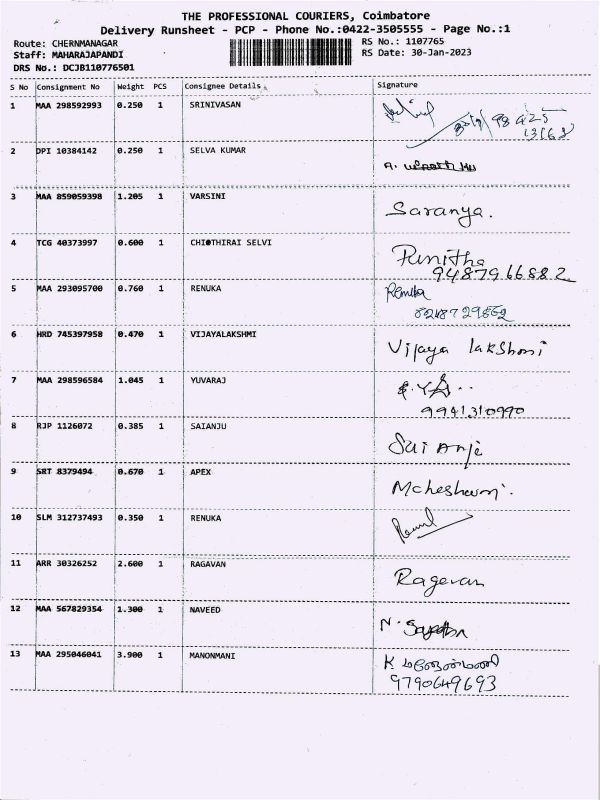 THE PROFESSIONAL COURIERS, Coimbatore
Delivery Runsheet - PCP - Phone No.:0422-3505555 - Page No.:1
Route: CHERNMANAGAR RS No.: 1107765
Staff: MAHARAJAPANDI RS Date: 30-Jan-2023
DRS No.: DCJB110776501
S No Consignment No Weight PCS Consignee Details Signature
1 MAA 298592993 0.250 1 SRINIVASAN
2 DPI 10384142 0.250 1 SELVA KUMAR
3 MAA 859059398 1.205 1 VARSINI Saranya.
4 TCG 40373997 0.600 1 CHITHIRAI SELVI Punitha
9487966882
5 MAA 293095700 0.760 1 RENUKA Renuka
6 HRD 745397958 0.470 1 VIJAYALAKSHMI Vijaya lakshmi
7 MAA 298596584 1.045 1 YUVARAJ
9941310990
8 RJP 1126072 0.385 1 SAIANJU Sai Anje
9 SRT 8379494 0.670 1 APEX
10 SLM 312737493 0.350 1 RENUKA
11 ARR 30326252 2.600 1 RAGAVAN Ragevan
12 MAA 567829354 1.300 1 NAVEED N.
13 MAA 295046041 3.900 1 MANONMANI K
9790649693